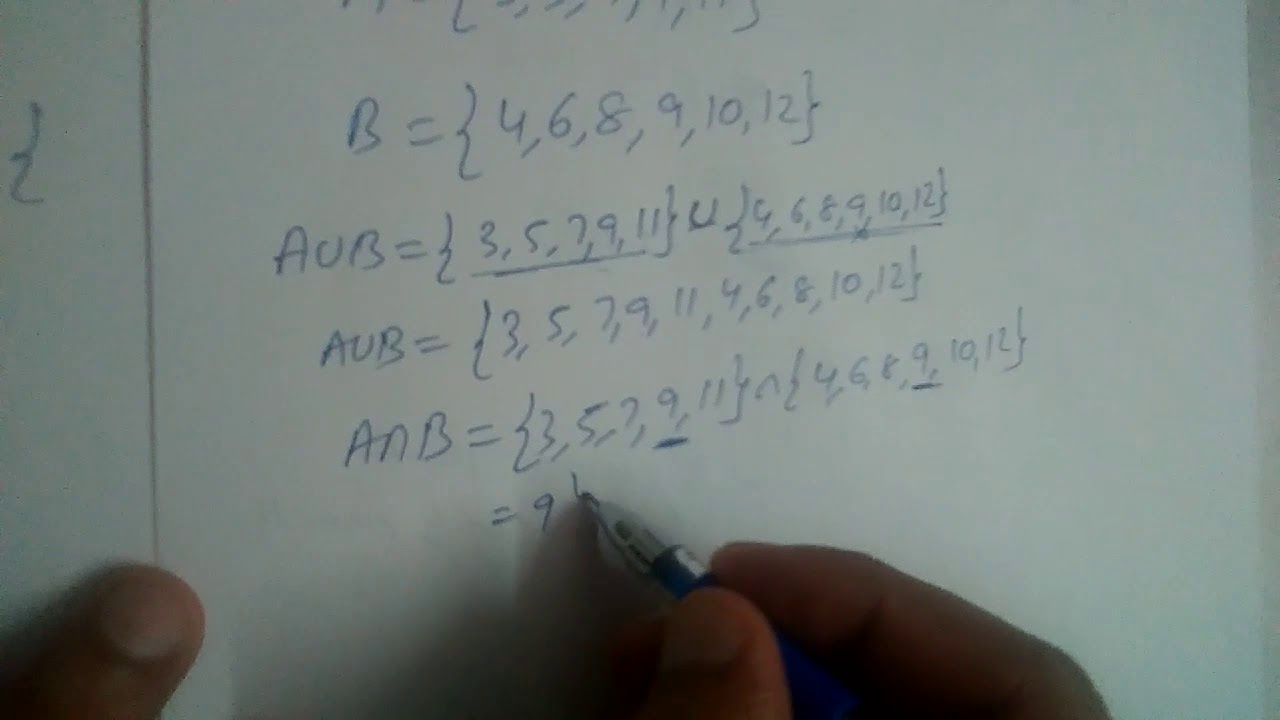 {
B = {4, 6, 8, 9, 10, 12}
A∪B = { 3, 5, 7, 9, 11} ∪ {4, 6, 8, 9, 10, 12}
A∪B = {3, 5, 7, 9, 11, 4, 6, 8, 10, 12}
A∩B = {3, 5, 7, 9, 11} ∩ {4, 6, 8, 9, 10, 12}
= 9